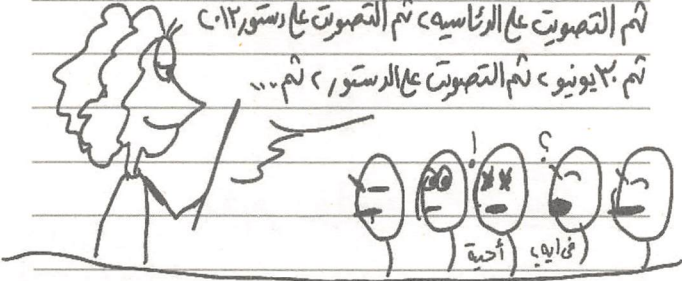 ثم التصويت على الرئاسية، ثم التصويت على دستور ٢٠١٢،
ثم ٣٠ يونيو، ثم التصويت على الدستور، ثم ...
! ؟
أحية
في ايه؟